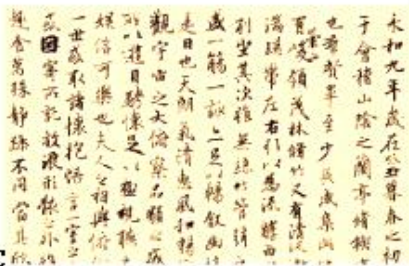 永和九年歲在癸丑暮春之初
于會稽山陰之蘭亭脩稧
也群賢畢至少長咸集此
有崇山峻領茂林脩竹又有清流
湍暎帶左右引以為流觴曲
列坐其次雖無絲竹管弦
盛一觴一詠亦足以暢敘幽
是日也天朗氣清惠風和暢
觀宇宙之大俯察品類之盛
所以遊目騁懷足以極視聽
娛信可樂也夫人之相與俯
一世或取諸懷抱悟言一室之
或因寄所託放浪形骸之外
趣舍萬殊靜躁不同當其欣